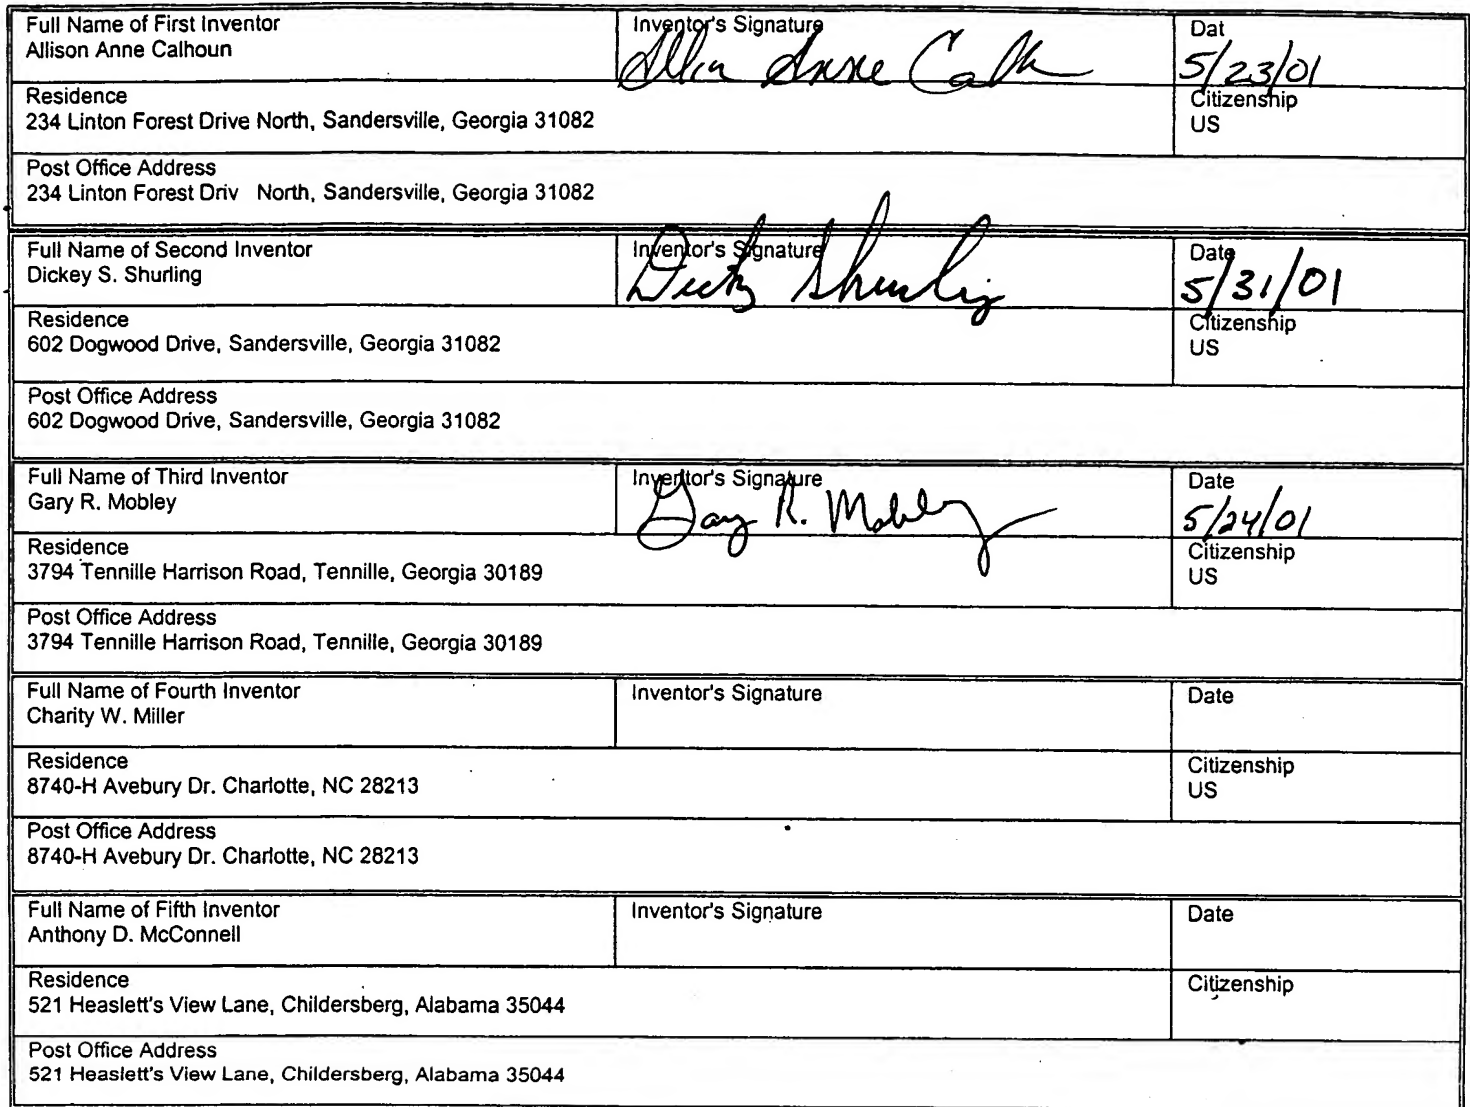 Full Name of First Inventor
Allison Anne Calhoun
Inventor's Signature
Allison Anne Calh
Dat
5/23/01
Residence
234 Linton Forest Drive North, Sandersville, Georgia 31082
Citizenship
US
Post Office Address
234 Linton Forest Driv North, Sandersville, Georgia 31082
Full Name of Second Inventor
Dickey S. Shurling
Inventor's Signature
Dicky Shurling
Date
5/31/01
Residence
602 Dogwood Drive, Sandersville, Georgia 31082
Citizenship
US
Post Office Address
602 Dogwood Drive, Sandersville, Georgia 31082
Full Name of Third Inventor
Gary R. Mobley
Inventor's Signature
Gary R. Mobley
Date
5/24/01
Residence
3794 Tennille Harrison Road, Tennille, Georgia 30189
Citizenship
US
Post Office Address
3794 Tennille Harrison Road, Tennille, Georgia 30189
Full Name of Fourth Inventor
Charity W. Miller
Inventor's Signature
Date
Residence
8740-H Avebury Dr. Charlotte, NC 28213
Citizenship
US
Post Office Address
8740-H Avebury Dr. Charlotte, NC 28213
Full Name of Fifth Inventor
Anthony D. McConnell
Inventor's Signature
Date
Residence
521 Heaslett's View Lane, Childersberg, Alabama 35044
Citizenship
Post Office Address
521 Heaslett's View Lane, Childersberg, Alabama 35044